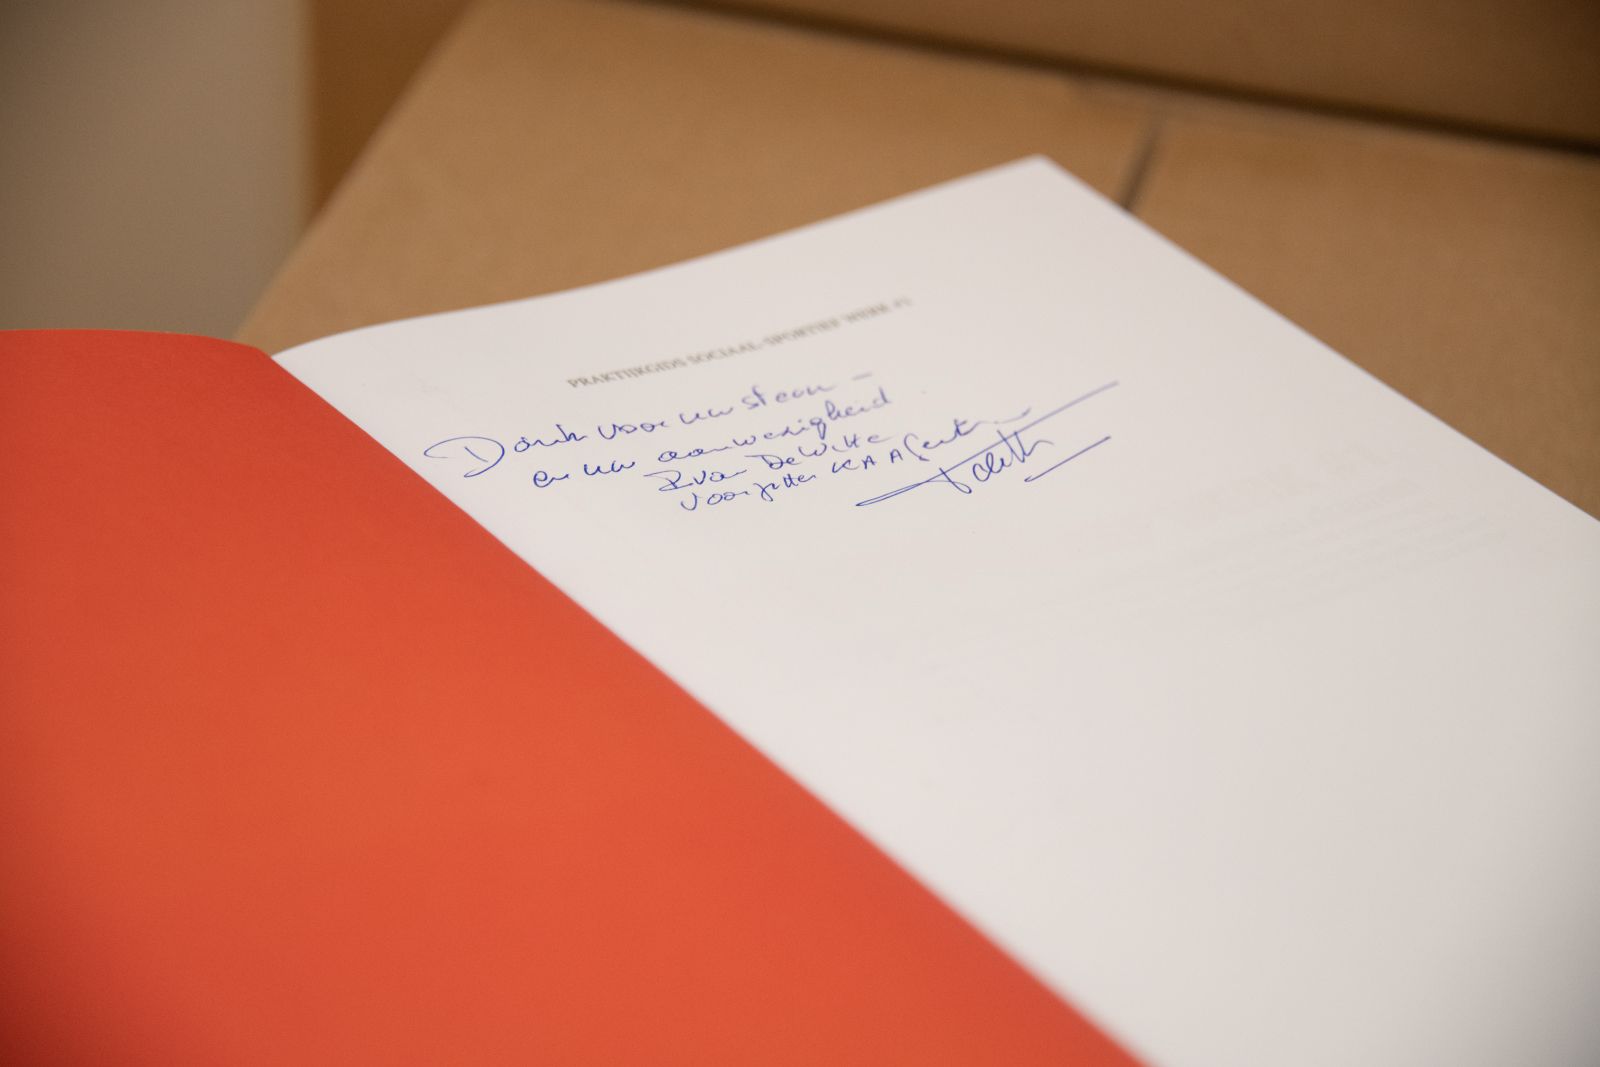 PRAKTIJKGIDS SOCIAAL-SPORTIEF WERK #1
Dank voor uw steun -
en uw aanwezigheid
Ivan De Witte
Voorzitter KAA Gent